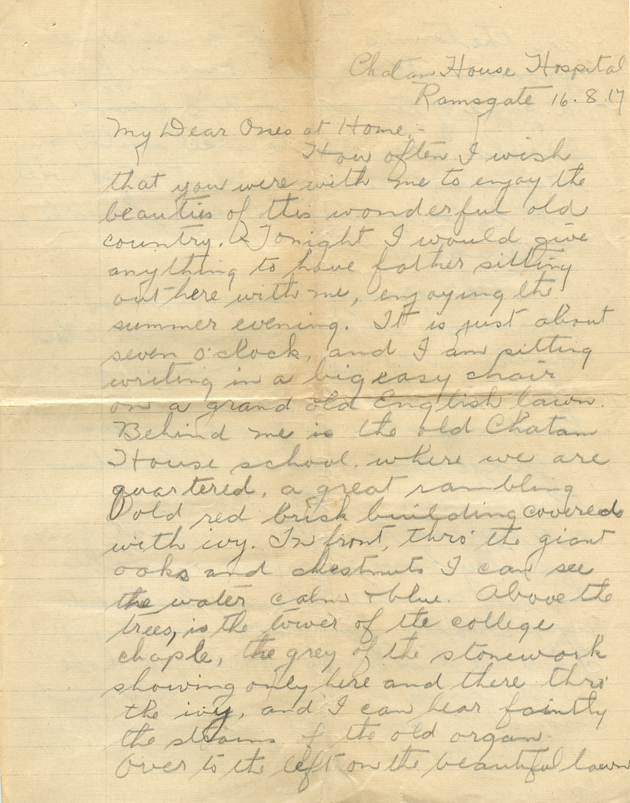 Chatam House Hospital
Ramsgate 16.8.17
My Dear Ones at Home,-
How often I wish
that you were with me to enjoy the
beauties of this wonderful old
country. Tonight I would give
anything to have father sitting
out here with me, enjoying the
summer evening. It is just about
seven o'clock, and I am sitting
writing in a big easy chair
on a grand old English lawn.
Behind me is the old Chatam
House school, where we are
quartered, a great rambling
old red brick building covered
with ivy. In front, thro' the giant
oaks and chestnuts I can see
the water calm & blue. Above the
trees, is the tower of the college
chaple, the grey of the stonework
showing only here and there thro'
the ivy, and I can hear faintly
the strains of the old organ.
Over to the left on the beautiful lawn